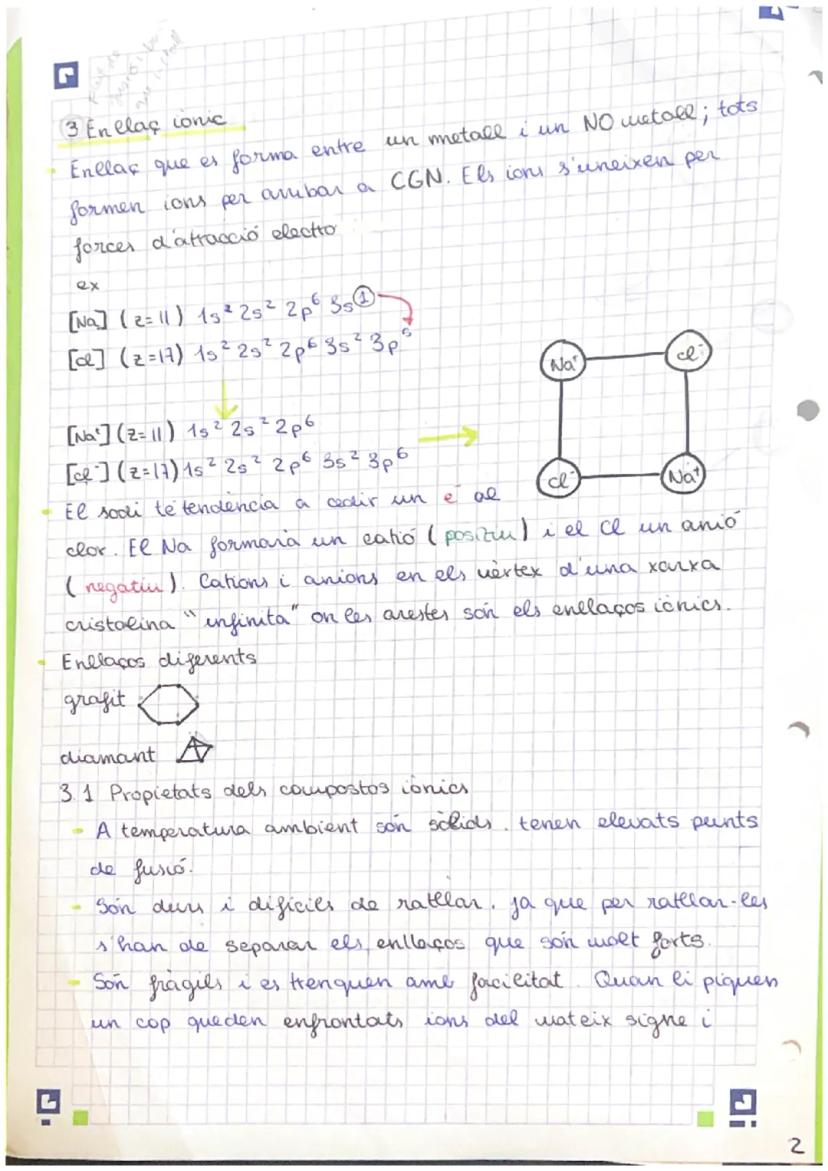 3 Enllaç iònic
Enllaç que es forma entre un metall i un NO metall; tots
formen ions per arribar a CGN. Els ions s'uneixen per
forces d'atracció electro
ex
[Na] (z=11) 1s² 2s² 2p⁶ 3s①
[Cl] (z=17) 1s² 2s² 2p⁶ 3s² 3p⁵
[Na⁺] (z=11) 1s² 2s² 2p⁶
[Cl⁻] (z=17) 1s² 2s² 2p⁶ 3s² 3p⁶
Na⁺ Cl⁻
Cl⁻ Na⁺
El sodi té tendència a cedir un e⁻ al
clor. El Na formarà un catió (positiu) i el Cl un anió
(negatiu). Cations i anions en els vèrtex d'una xarxa
cristalina "infinita" on les arestes són els enllaços iònics.
Enllaços diferents
grafit
diamant
3.1 Propietats dels compostos iònics
A temperatura ambient són sòlids. tenen elevats punts
de fusió.
Són durs i difícils de ratllar, ja que per ratllar-les
s'han de separar els enllaços que són molt forts.
Són fràgils i es trenquen amb facilitat. Quan li piquen
un cop queden enfrontats ions del mateix signe i
2